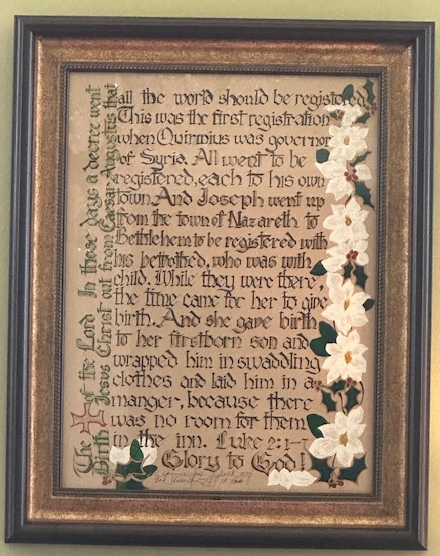 The Birth of the Lord Jesus Christ
In those days a decree went
out from Caesar Augustus that
all the world should be registered
This was the first registration
when Quirinius was governor
of Syria. All went to be
registered, each to his own
town. And Joseph went up
from the town of Nazareth to
Bethlehem to be registered with
his betrothed, who was with
child. While they were there,
the time came for her to give
birth. And she gave birth
to her firstborn son and
wrapped him in swaddling
clothes and laid him in a
manger, because there
was no room for them
in the inn. Luke 2:1-7
Glory to God!